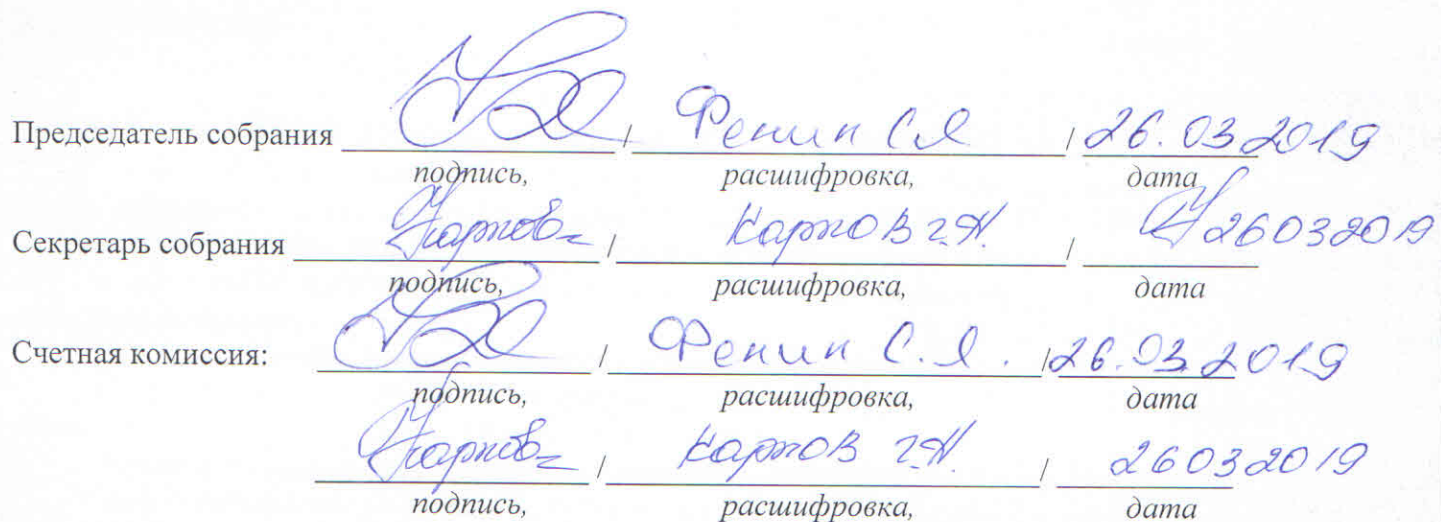 Председатель собрания / Фенин С.Я / 26.03.2019
подпись, расшифровка, дата
Секретарь собрания Карпов / Карпов Г.Н. / 26032019
подпись, расшифровка, дата
Счетная комиссия: / Фенин С.Я. / 26.03.2019
подпись, расшифровка, дата
Карпов / Карпов Г.Н. / 26032019
подпись, расшифровка, дата